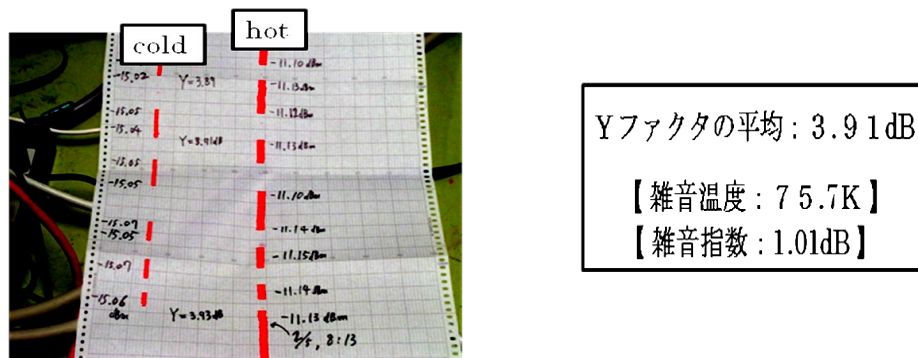 cold
hot
-11.10 dBm
-15.02
Y=3.89
-11.13dBm
-11.12dBm
-15.05
-15.04
Y=3.91dB
-11.13dBm
-15.05
-15.05
-11.10 dBm
-15.07
-15.05
-11.14 dBm
-11.15dBm
-15.07
-11.14 dBm
-15.06
dBm
Y=3.93dB
-11.13 dBm
2/5, 8:13
Yファクタの平均:3.91dB
【雑音温度:75.7K】
【雑音指数:1.01dB】